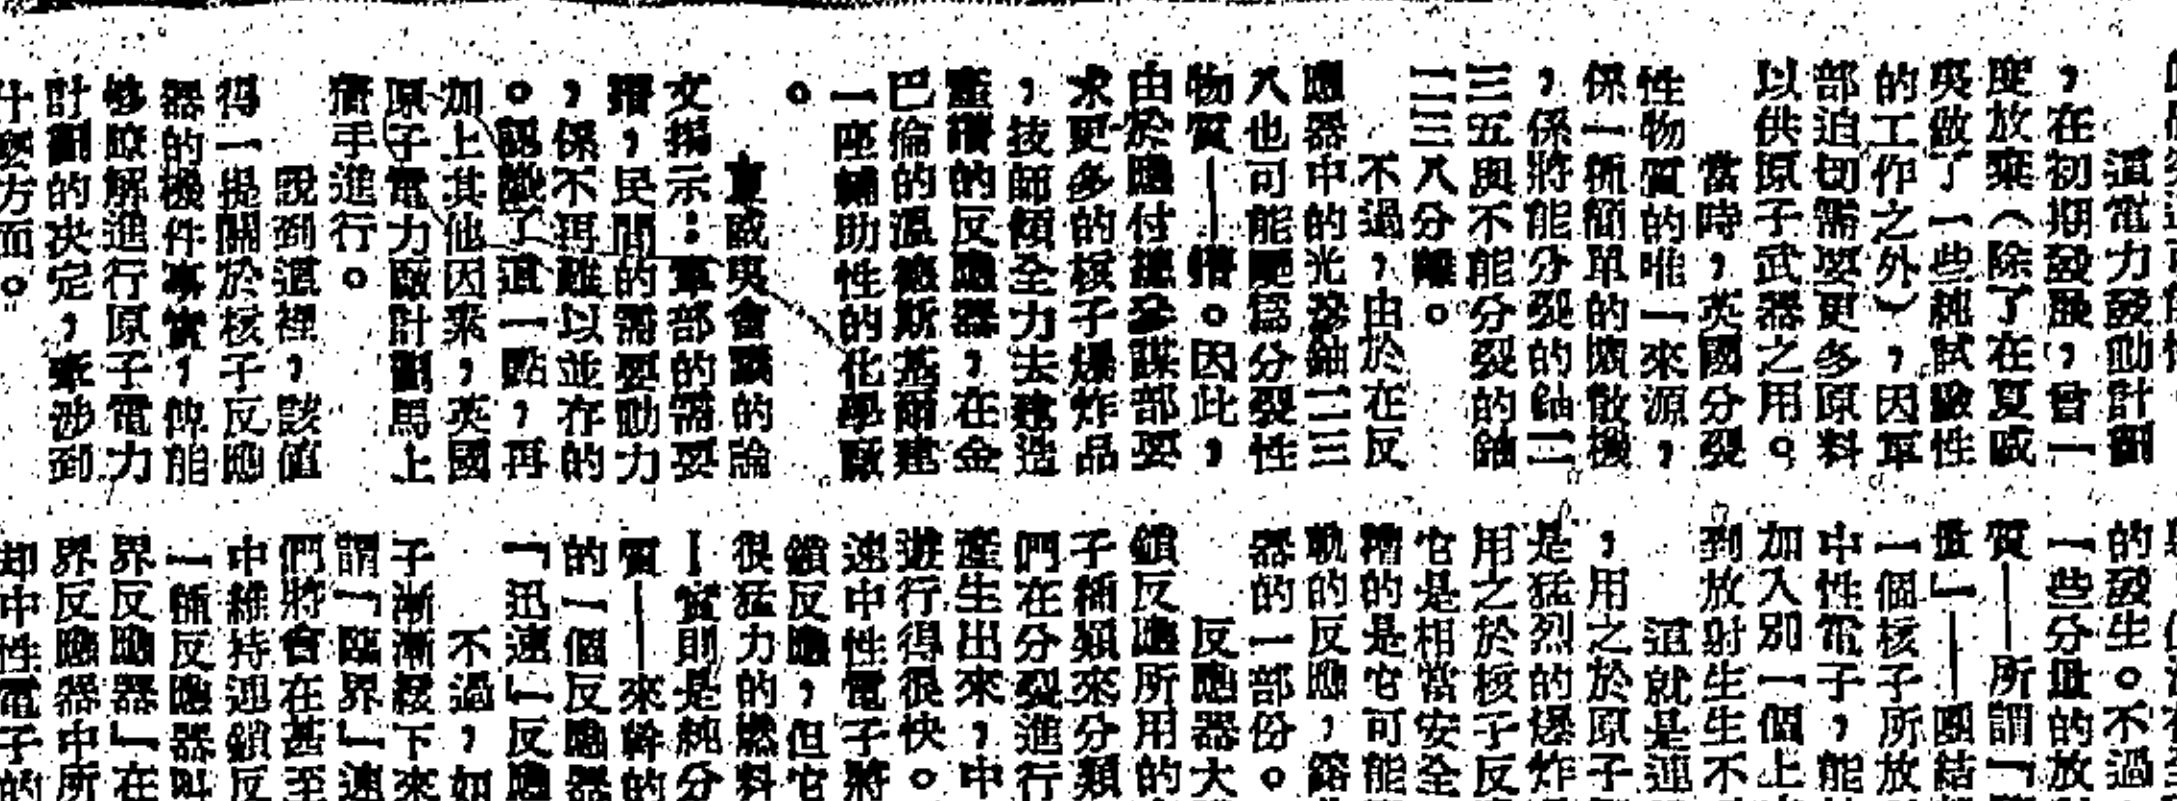 這電力發動計劃
，在初期發展，曾一
度放棄（除了在夏威
與做了一些純試驗性
的工作之外），因軍
部迫切需要更多原料
以供原子武器之用。
當時，英國分裂
性物質的唯一來源，
係一種簡單的擴散機
，係將能分裂的鈾二
三五與不能分裂的鈾
二三八分離。
不過，由於在反
應器中的光芒鈾二三
八也可能變為分裂性
物質——。因此，
由於應付參謀部要
求更多的核子爆炸品
，技師傾全力去建造
產的反應器，在金
巴倫的溫德斯基爾建
一座輔助性的化學廠
。
夏威與會議的論
文揭示：軍部的需要
，民間的需要動力
，保不再難以並存的
。認識了這一點，再
加上其他因素，英國
原子電力廠計劃馬上
着手進行。
說到這裡，該值
得一提關於核子反應
器的機件事實，俾能
夠瞭解進行原子電力
計劃的決定，牽涉到
什麼方面。"
的發生。不過
一些分量的放
質——所謂「
量」——團結
一個核子所放
中性電子，能
加入別一個上
到放射生生不
這就是連
，用之於原子
是猛烈的爆炸
用之於核子反
它是相當安全
糟的是它可能
軌的反應，鎔
器的一部份。
反應器大
鎖反應所用的
子種類來分類
們在分裂進行
產生出來，中
遊行得很快。
速中性電子將
鎖反應，但它
很猛力的燃料
—實則是純分
質——來幹的
的一個反應器
「迅速」反應
不過，如
子漸漸緩下來
謂「臨界」速
們將會在甚至
中維持連鎖反
一種反應器叫
界反應器」在
界反應器中所
却中性電子的